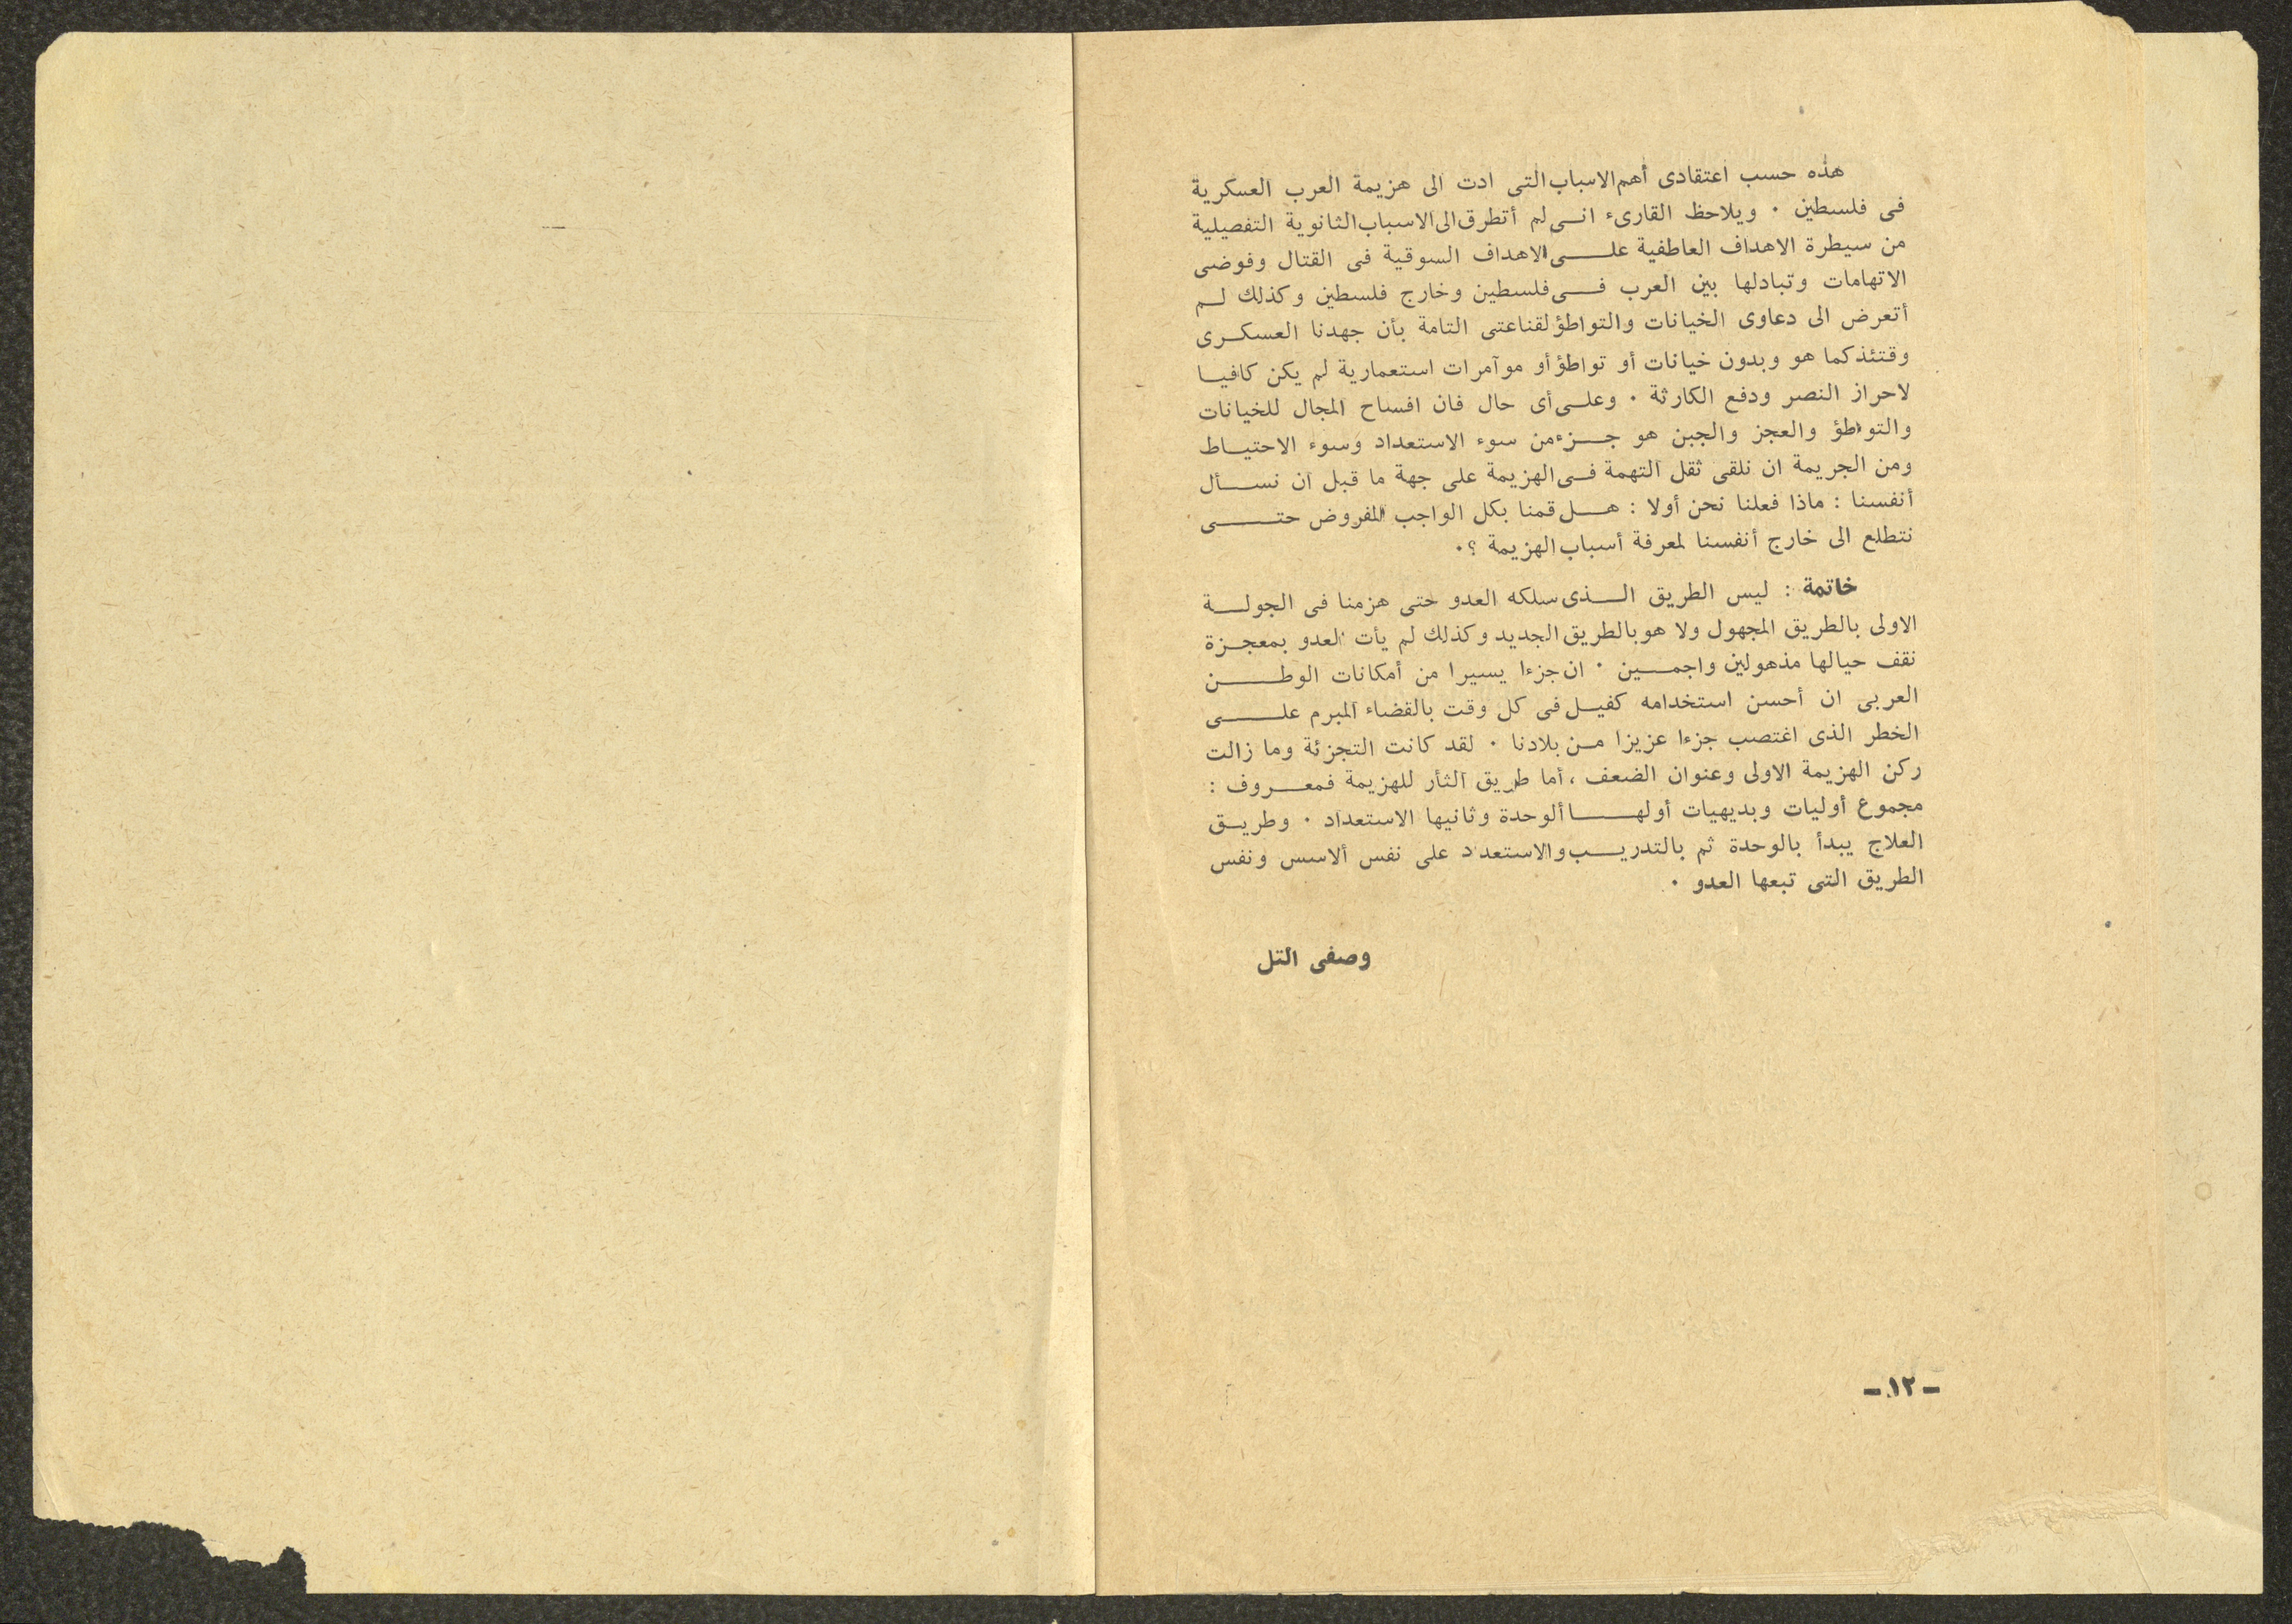 هذه حسب اعتقادى أهم الاسباب التى ادت الى هزيمة العرب العسكرية
فى فلسطين ٠ ويلاحظ القارىء انى لم أتطرق الى الاسباب الثانوية التفصيلية
من سيطرة الاهداف العاطفية على الاهداف السوقية فى القتال وفوضى
الاتهامات وتبادلها بين العرب فى فلسطين وخارج فلسطين وكذلك لم
أتعرض الى دعاوى الخيانات والتواطؤ لقناعتى التامة بأن جهدنا العسكرى
وقتئذ كما هو وبدون خيانات أو تواطؤ أو موآمرات استعمارية لم يكن كافيا
لاحراز النصر ودفع الكارثة ٠ وعلى أى حال فان افساح المجال للخيانات
والتواطؤ والعجز والجبن هو جزء من سوء الاستعداد وسوء الاحتياط
ومن الجريمة ان نلقى ثقل التهمة فى الهزيمة على جهة ما قبل ان نسأل
أنفسنا : ماذا فعلنا نحن أولا : هل قمنا بكل الواجب المفروض حتى
نتطلع الى خارج أنفسنا لمعرفة أسباب الهزيمة ؟٠
خاتمة : ليس الطريق الذى سلكه العدو حتى هزمنا فى الجولة
الاولى بالطريق المجهول ولا هو بالطريق الجديد وكذلك لم يأت العدو بمعجزة
نقف حيالها مذهولين واجمين ٠ ان جزءا يسيرا من أمكانات الوطن
العربى ان أحسن استخدامه كفيل فى كل وقت بالقضاء المبرم على
الخطر الذى اغتصب جزءا عزيزا من بلادنا ٠ لقد كانت التجزئة وما زالت
ركن الهزيمة الاولى وعنوان الضعف ، أما طريق الثأر للهزيمة فمعروف :
مجموع أوليات وبديهيات أولها ألوحدة وثانيها الاستعداد ٠ وطريق
العلاج يبدأ بالوحدة ثم بالتدريب والاستعداد على نفس ألاسس ونفس
الطريق التى تبعها العدو ٠
وصفى التل
- ١٢ -